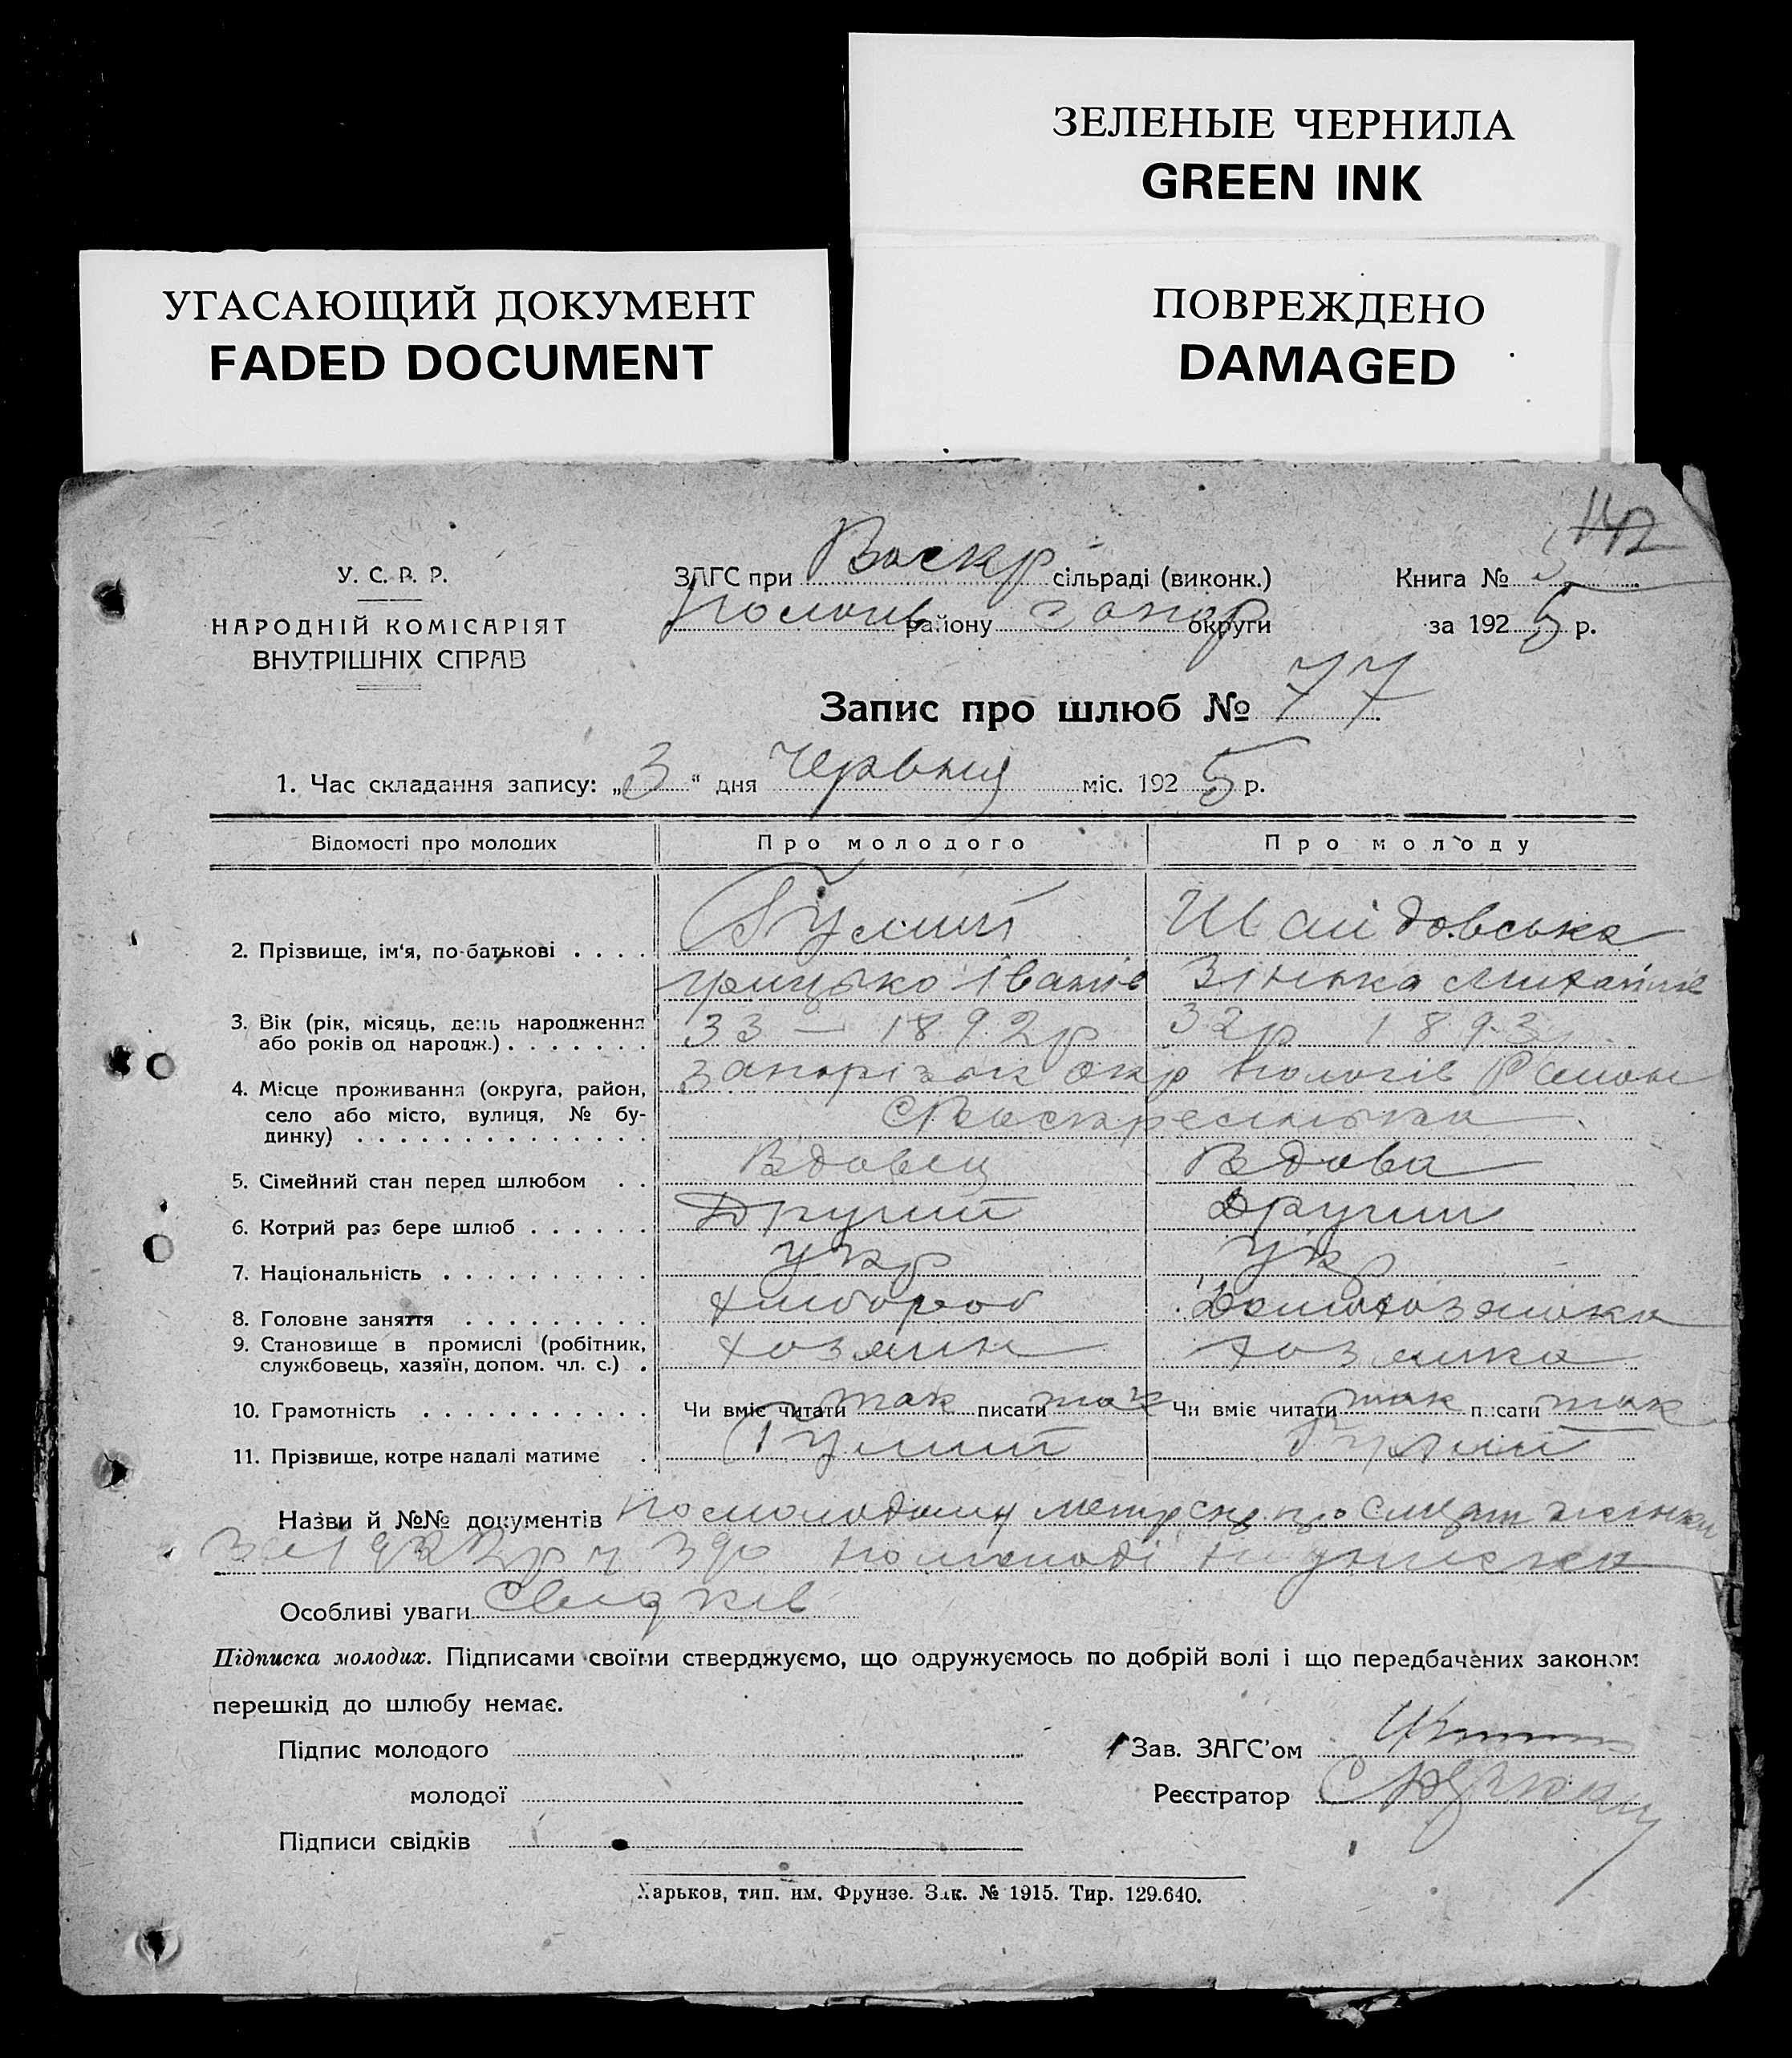 ЗЕЛЕНЫЕ ЧЕРНИЛА
GREEN INK
УГАСАЮЩИЙ ДОКУМЕНТ
FADED DOCUMENT
ПОВРЕЖДЕНО
DAMAGED
142
У. С. Р. Р.
НАРОДНІЙ КОМІСАРІЯТ
ВНУТРІШНІХ СПРАВ
ЗАГС при Воскр сільраді (виконк.)
Пологів району Запор округи
Книга № 5
за 1925 р.
Запис про шлюб № 77
1. Час складання запису: „3“ дня Червня міс. 1925 р.
Відомості про молодих Про молодого Про молоду
2. Прізвище, ім'я, по-батькові . . . . Гулий Шайдовська
Грицько Іванів Зінька Михайлів
3. Вік (рік, місяць, день народження 33 — 1892р 32р 1893р
або років од народж.) . . . . . . .
4. Місце проживання (округа, район, Запорізьк окр Пологів Район
село або місто, вулиця, № бу-
динку) . . . . . . . . . . . . . . . С Воскресенька
5. Сімейний стан перед шлюбом . . Вдовец Вдова
6. Котрий раз бере шлюб . . . . . . Другий Другий
7. Національність . . . . . . . . . . Укр Укр
8. Головне заняття . . . . . . . . . Хлібороб Домохозяйка
9. Становище в промислі (робітник,
службовець, хазяїн, допом. чл. с.) . хозяин хозяйка
10. Грамотність . . . . . . . . . . . Чи вміє читати так писати так Чи вміє читати так писати так
11. Прізвище, котре надалі матиме . Гулий Гулий
Назви й №№ документів По молодому про смерт жінки
За 1922р ч 390 по молоді
Особливі уваги свідків
Підписка молодих. Підписами своїми стверджуємо, що одружуємось по добрій волі і що передбачених законом
перешкід до шлюбу немає.
Підпис молодого
Зав. ЗАГС'ом
молодої
Реєстратор
Підписи свідків
Харьков, тип. им. Фрунзе. Зак. № 1915. Тир. 129.640.